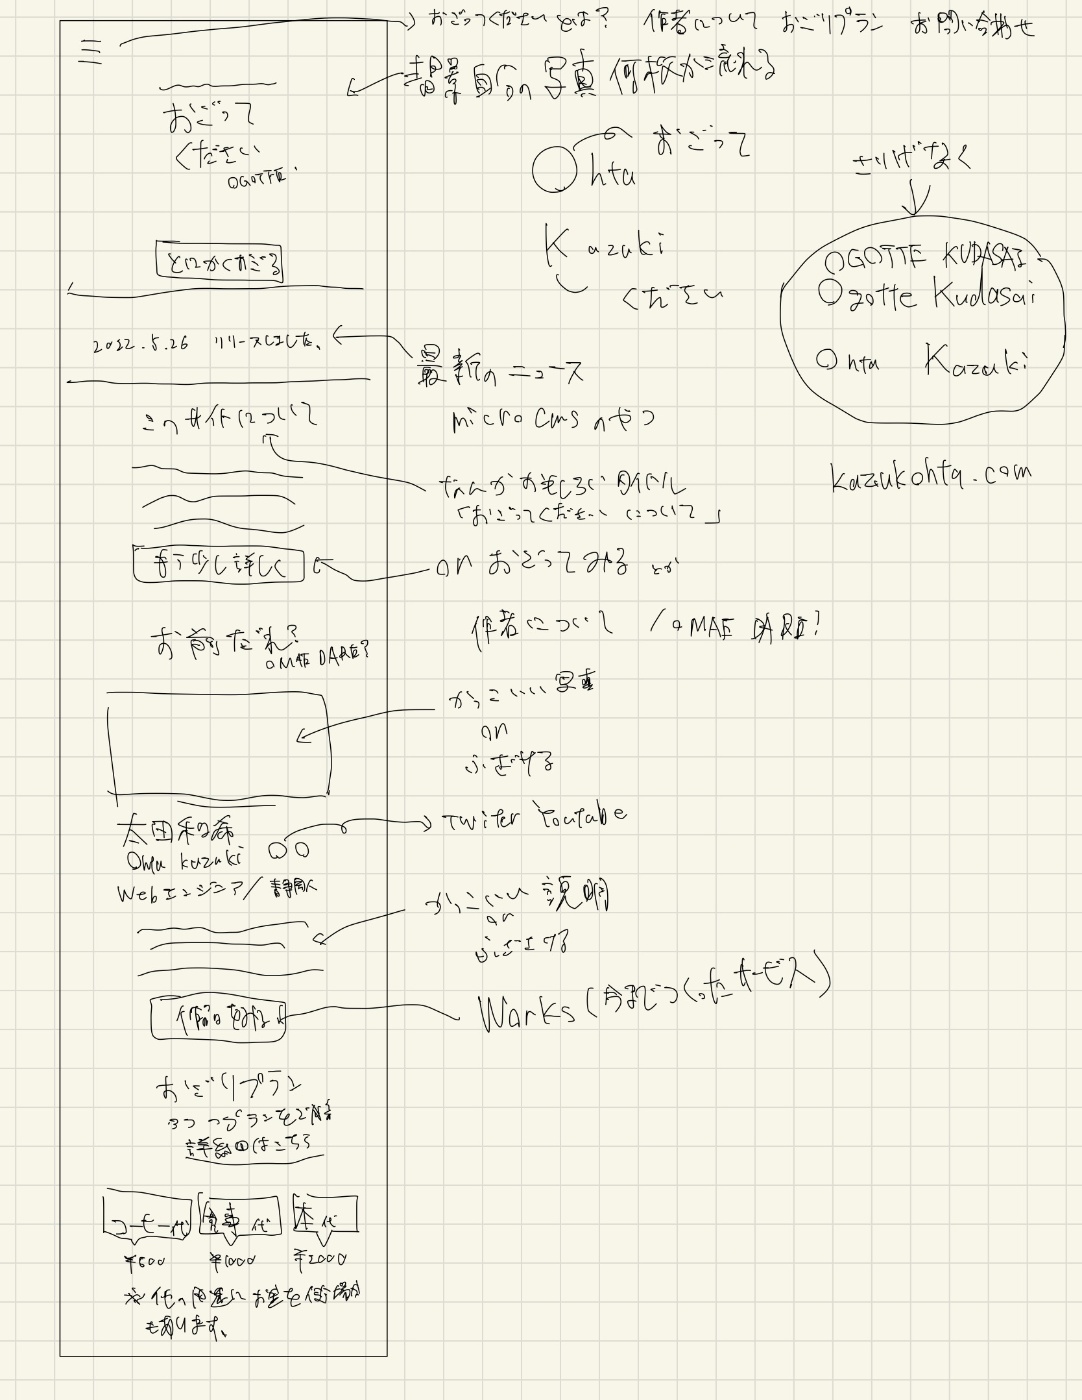 おごってくださいとは? 作者について おごりプラン お問い合わせ
背景 自分の写真 何枚か流れる
おごって
ください
OGOTTE
おごって
Ohta
Kazuki
ください
さりげなく
OGOTTE KUDASAI
Ogotte Kudasai
Ohta Kazuki
kazukohta.com
とにかくおごる
2022.5.26 リリースしました、
最新のニュース
micro cmsのやつ
このサイトについて
なんかおもしろいタイトル
「おごってください について」
もう少し詳しく
or おごってみる とか
お前だれ?
OMAE DARE?
作者について / OMAE DARE?
かっこいい写真
or
ふざける
太田和希
Ohta kazuki
Twiter Youtube
Webエンジニア/静岡
かっこいい 説明
or
ふざける
作品をみる
Works(今までつくったサービス)
おごりプラン
3つのプランをご用意
詳細はこちら
コーヒー代 食事代 本代
¥500 ¥1000 ¥2000
※他の用途にお金を使う場合
もあります。